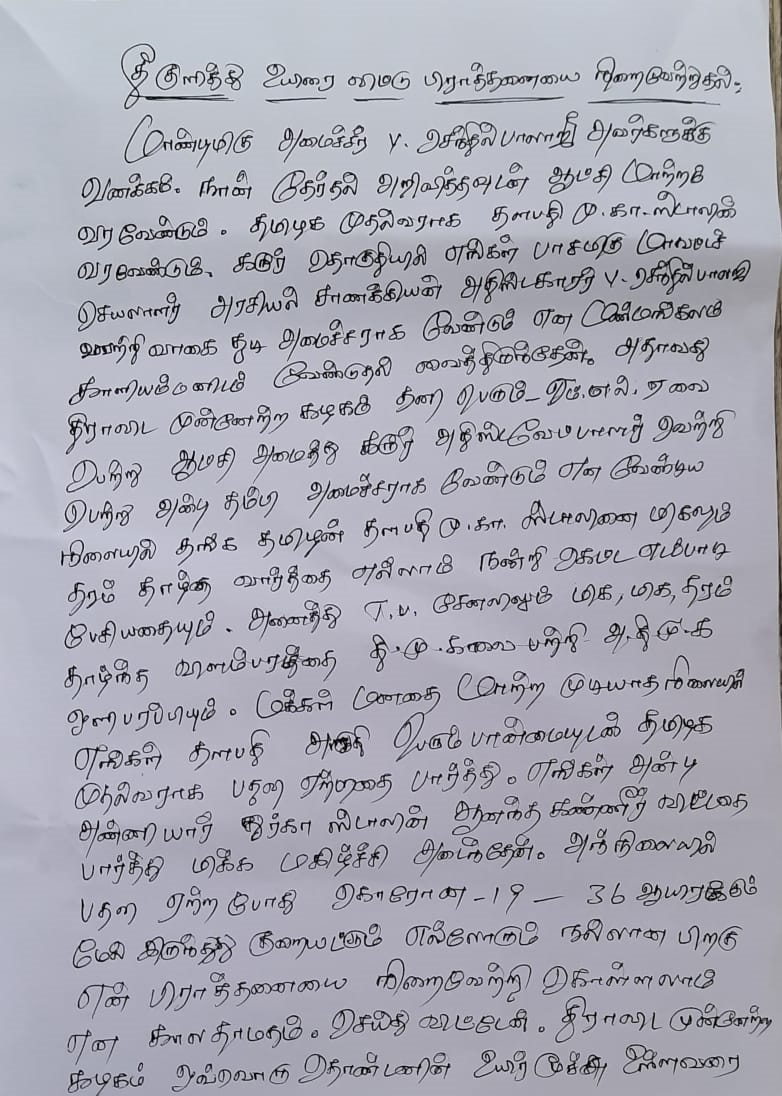 தீ குளித்து உயிரை விட்டு பிராத்தனையை நிறைவேற்றுதல்:
மாண்புமிகு அமைச்சர் V. செந்தில்பாலாஜி அவர்களுக்கு
வணக்கம். நான் தேர்தல் அறிவித்தவுடன் ஆட்சி மாற்றம்
வரவேண்டும். தமிழக முதல்வராக தளபதி மு.கா.ஸ்டாலின்
வரவேண்டும், கரூர் தொகுதியில் எங்கள் பாசமிகு மாவட்ட
செயலாளர் அரசியல் சாணக்கியன் V. செந்தில்பாலாஜி
வெற்றி வாகை சூடி அமைச்சராக வேண்டும் என
காளியம்மனிடம் வேண்டுதல் வைத்திருந்தேன். அதாவது
திராவிட முன்னேற்ற கழகம் தனி பெரும் எம்.எல்.ஏவை
பெற்று ஆட்சி அமைத்து கரூர் வெற்றி
பெற்று அன்பு தம்பி அமைச்சராக வேண்டும் என வேண்டிய
நிலையில் தங்க தமிழன் தளபதி மு.கா. ஸ்டாலினை மிகவும்
தரம் தாழ்ந்த வார்த்தை எல்லாம்
பேசியதையும். அனைத்து T.V. சேனலிலும் மிக, மிக, தரம்
தாழ்ந்த விளம்பரத்தை தி.மு.கவை பற்றி அ.தி.மு.க
ஒளிபரப்பியும். மக்கள் மனதை மாற்ற முடியாத நிலையில்
எங்கள் தளபதி பெரும்பான்மையுடன் தமிழக
முதல்வராக பதவி ஏற்றதை பார்த்து. எங்கள் அன்பு
அண்ணியார் துர்கா ஸ்டாலின் ஆனந்த கண்ணீர் விட்டதை
பார்த்து மிக்க மகிழ்ச்சி அடைந்தேன். அந்நிலையில்
பதவி ஏற்ற போது கொரோனா -19 - 36 ஆயிரத்தும்
மேல் இருந்தது குறையட்டும் எல்லோரும் நல்லான பிறகு
என் பிராத்தனையை நிறைவேற்றி கொள்ளலாம்
என காலதாமதம். செய்து விட்டேன். திராவிட முன்னேற்ற
கழகம் ஒவ்வொரு தொண்டனின் உயிர் மூச்சு உள்ளவரை